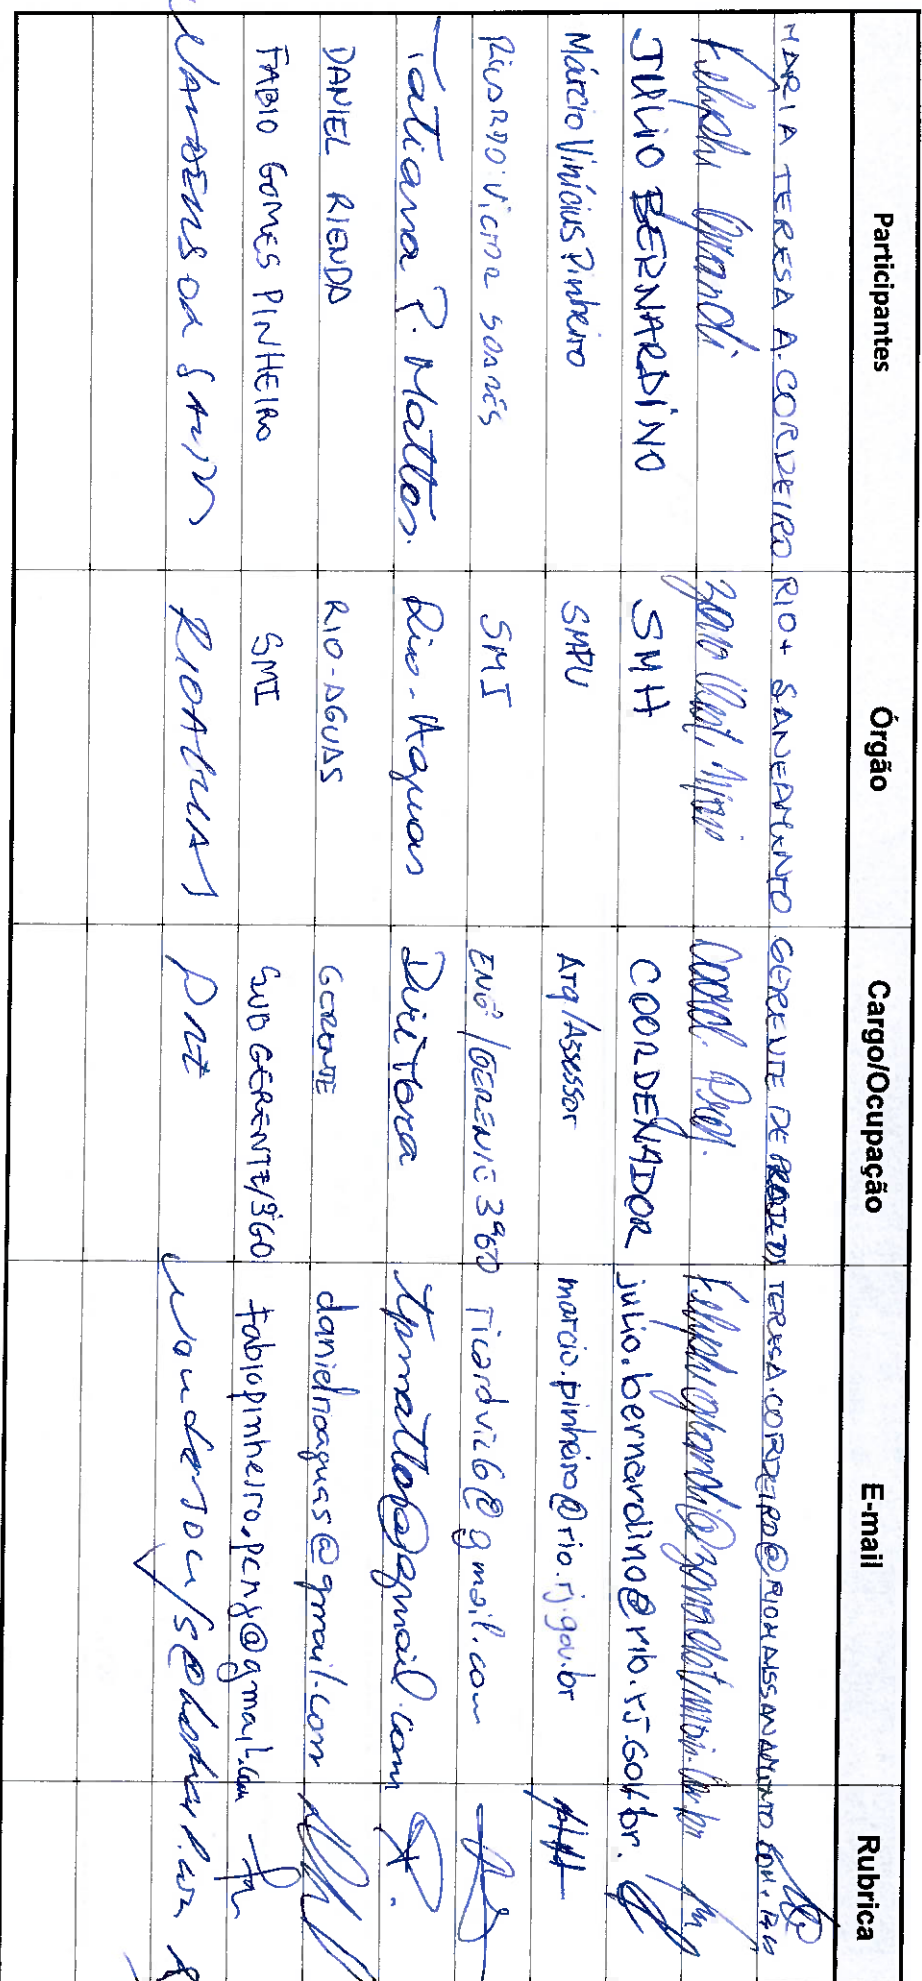 Participantes Órgão Cargo/Ocupação E-mail Rubrica
MARIA TERESA A. CORDEIRO RIO+ SANEAMENTO GERENTE DE PROJETOS TERESA.CORDEIRO@RIOMAISSANEAMENTO.COM.BR
JULIO BERNARDINO SMH COORDENADOR julio.bernardino@rio.rj.gov.br
Márcio Vinícius Pinheiro SMPU Arq/Assessor marcio.pinheiro@rio.rj.gov.br
RICARDO VICTOR SOARES SMI ENGº/GERENTE 3ªGO ricardvic6@gmail.com
Tatiana P. Mattos. Rio-Aguas Diretora tpmattos@gmail.com
DANIEL RIENDA RIO-AGUAS GERENTE danielrioaguas@gmail.com
FABIO GOMES PINHEIRO SMI SUBGERENTE/3ªGO fabiopinheiro.pcrj@gmail.com
RIOAGUAS